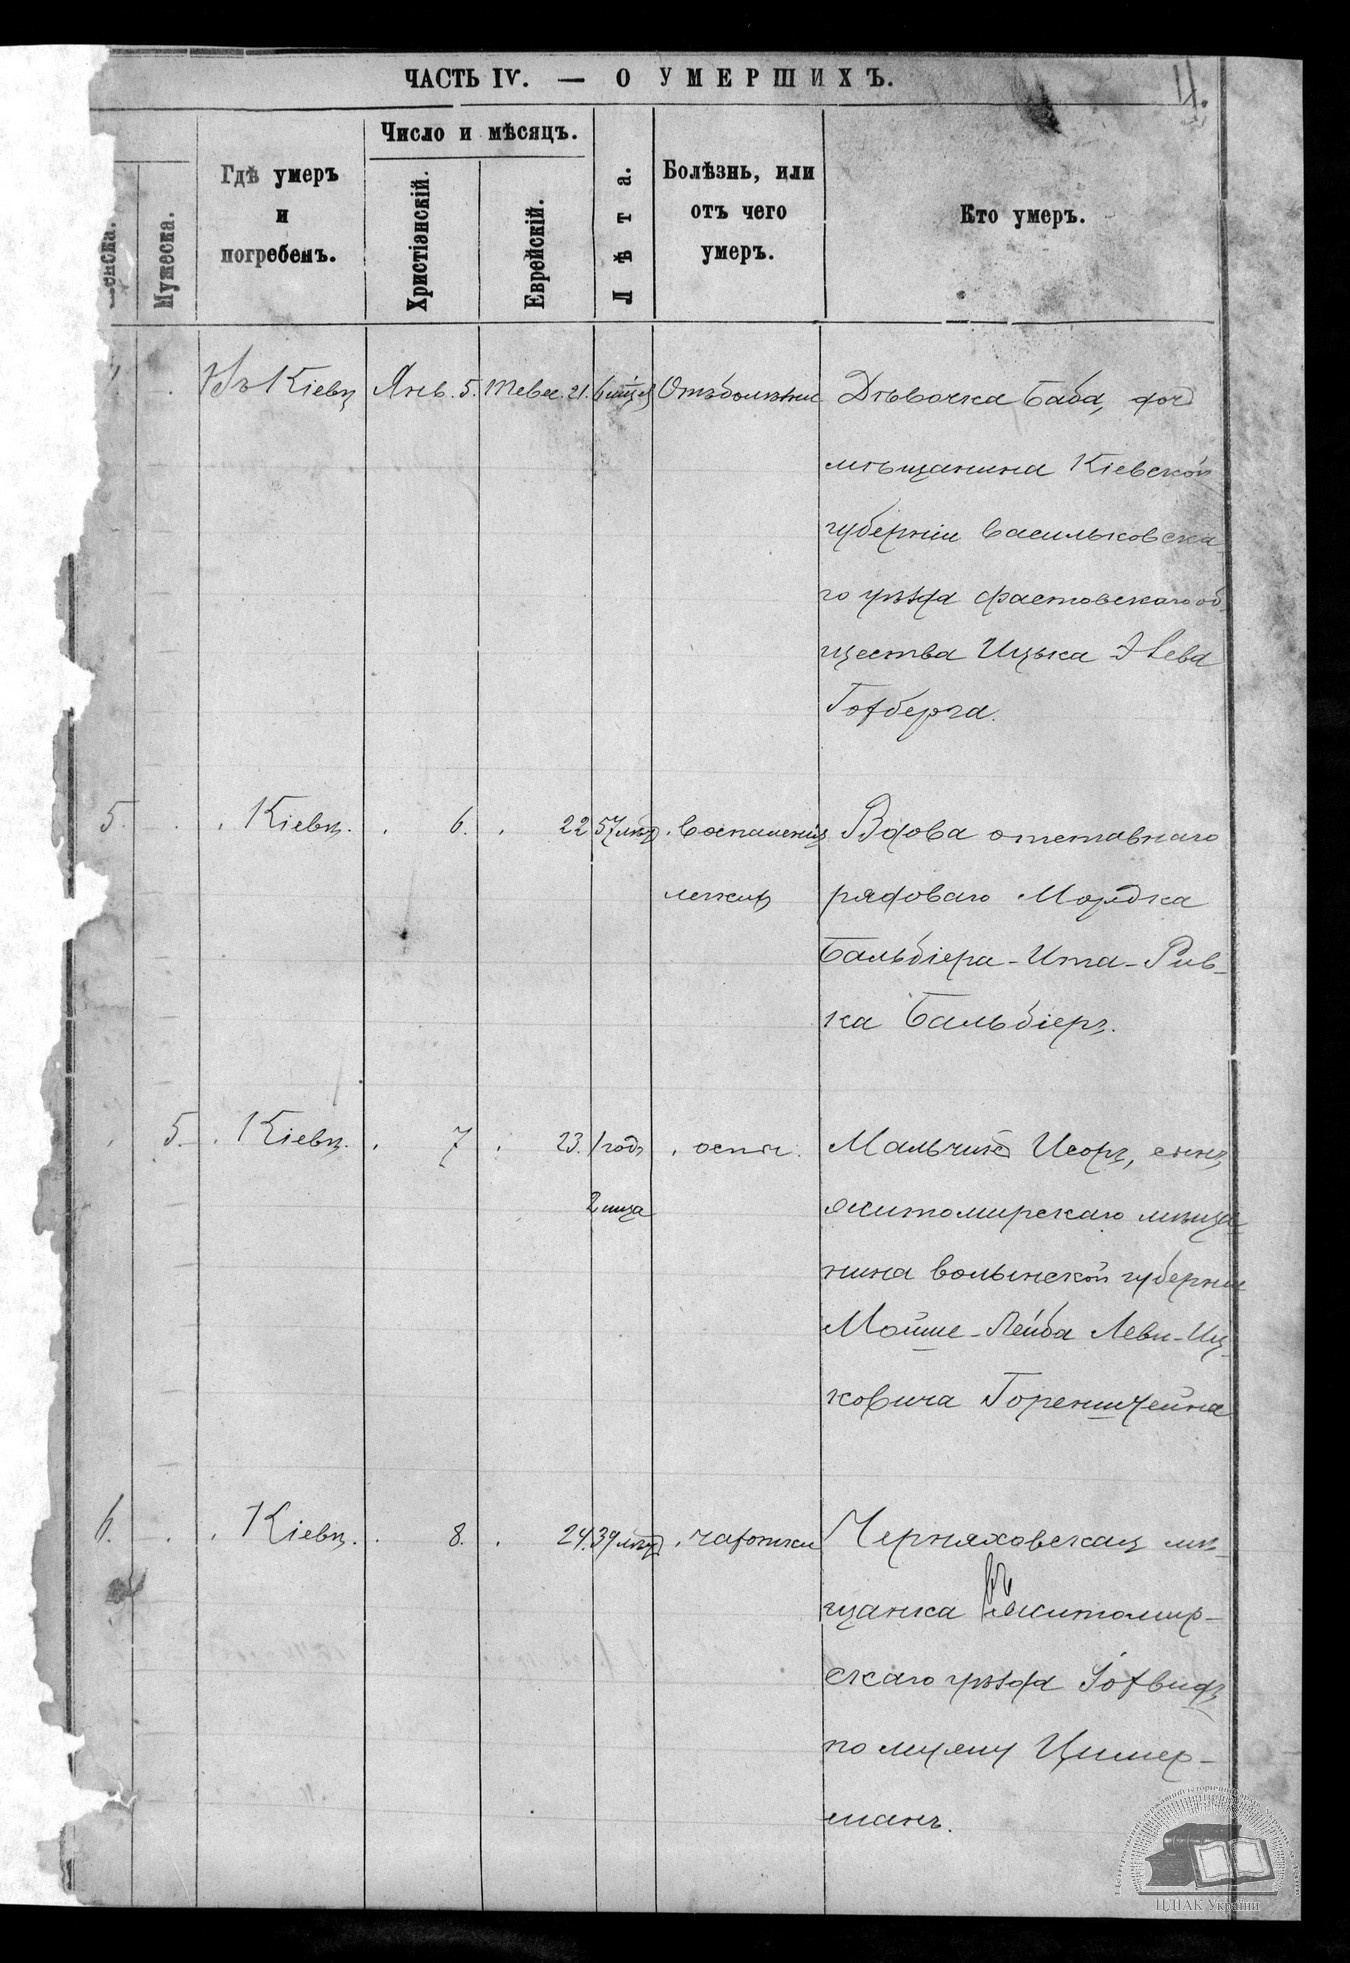 ЧАСТЬ IV. — О УМЕРШИХЪ.
4.
Мужеска.
Гдѣ умеръ
и
погребенъ.
Число и мѣсяцъ.
Христіанскій.
Еврейскій.
Лѣта.
Болѣзнь, или
отъ чего
умеръ.
Кто умеръ.
Въ Кіевѣ Янв. 5. Тевес. 21. Дѣвочка Баба, доч
мѣщанина Кіевской
губерніи Васильковска
го уѣзда фастовскаго об
щества Ицька
Готберга.
5. Кіевѣ. 6. 22 57 лѣтъ воспаленія Вдова отставнаго
легкихъ рядоваго Мордка
Бальбіера - Ита - Рив-
ка Бальбіеръ.
5. Кіевѣ. 7 23. 1 годъ оспы. Мальчикъ сынъ
2 мца житомирскаго мѣща
нина волынской губерніи
Мойше - Лейба Леви - Иц-
ковича
6. Кіевѣ. 8. 24. 39 лѣтъ чахотки Черняховская мѣ-
щанка житомир-
скаго уѣзда
по мужу Цимер-
манъ.
ЦДІАК України